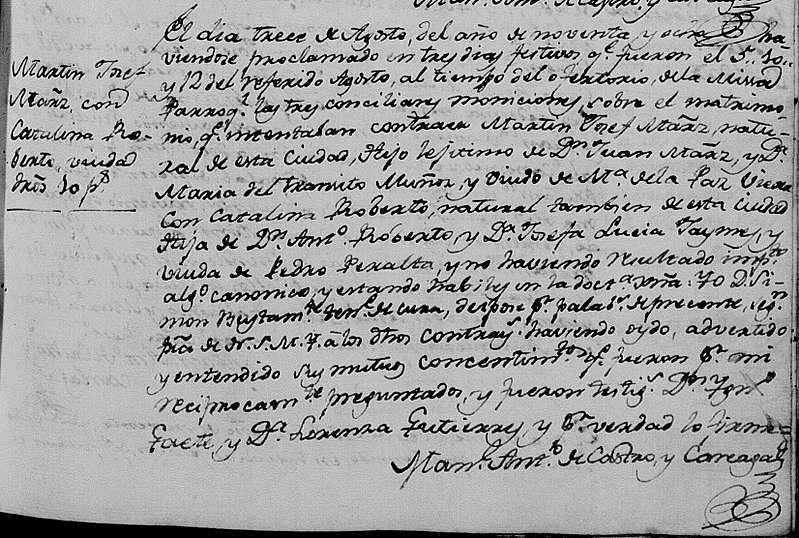 Martin Josef
Mãrz, con
Catalina Ro-
berto, viuda
drõs 10 ps
El dia trece de Agosto, del año de noventa y ocho, ha-
viendose proclamado en tres dias festivos qe. fueron el 5.. 10..
y 12 del referido Agosto, al tiempo del ofertorio, dela Missa
Parroql. las tres conciliares moniciones, sobre el matrimo-
nio, qe. intentaban contraer Martin Josef Mãrz, natu-
ral de esta Ciudad, Hijo lexitimo de Dn. Juan Mãrz, y Da.
Maria del transito Muñoz, y viudo de Ma. dela Paz Viera
con Catalina Roberto, natural tambien de esta Ciudad
Hija de Dn. Anto. Roberto, y Da. Josefa Lucia Jayme, y
viuda de Pedro Peralta, y no haviendo resultado impto.
algo. canonico, y estando habiles en la docta. xña: Yo D. Si-
mon Bustamte. tente. de cura, despose pr. palabs. de presente, segn.
de N. S. M. Y. à los dhos contrays. haviendo oydo, advertido
y entendido sus mutuos concentimtos. qe. fueron pr. mi
reciprocamte. preguntados, y fueron testigs. Dn.
Gaete, y Da. Lorenza Gutierrez y pr. verdad lo firme=
Manl. Anto. de Castro, y Careaga